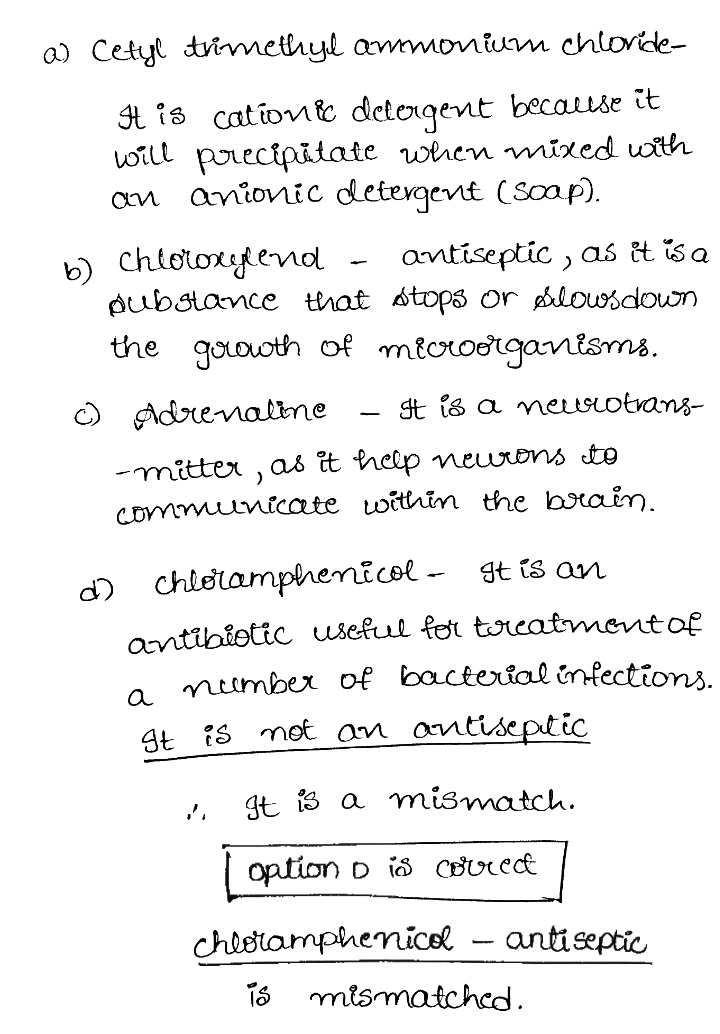 a) Cetyl trimethyl ammonium chloride-
It is cationic detergent because it
will precipitate when mixed with
an anionic detergent (soap).
b) Chloroxylenol - antiseptic, as it is a
substance that stops or slowsdown
the growth of microorganisms.
c) Adrenaline - It is a neurotrans-
-mitter, as it help neurons to
communicate within the brain.
d) chloramphenicol - It is an
antibiotic useful for treatment of
a number of bacterial infections.
It is not an antiseptic
∴ It is a mismatch.
option D is correct
chloramphenicol - antiseptic
is mismatched.